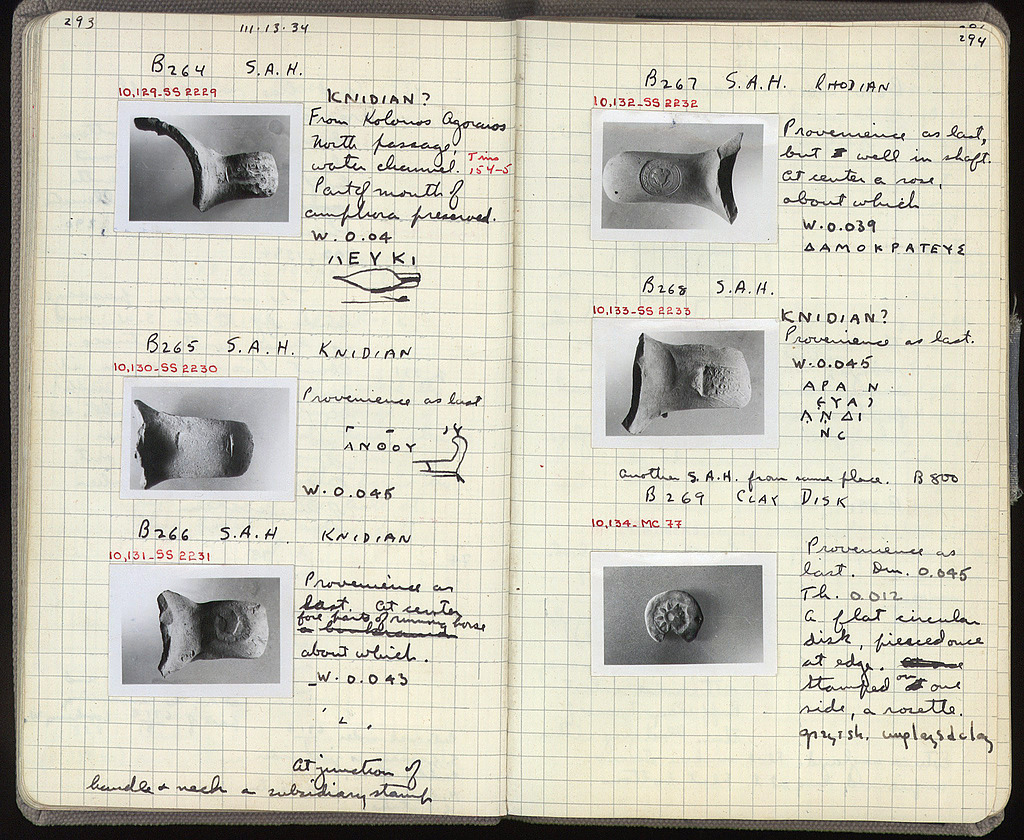 293
111·13·34
B264 S.A.H.
10,129-SS 2229
KNIDIAN?
From Kolonos Agoraios
North passage,
water channel.
154-5
Part of mouth of
amphora preserved.
W. 0.04
ΛΕΥΚΙ
B265 S.A.H. KNIDIAN
10,130-SS 2230
Provenience as last
ΑΝΘΟΥ
W. 0.045
B266 S.A.H. KNIDIAN
10,131-SS 2231
Provenience as
last. At center
fore parts of running horse
about which.
W. 0.043
At junction of
handle & neck a subsidiary stamp
294
B267 S.A.H. RHODIAN
10,132-SS 2232
Provenience as last,
but well in shaft.
At center a rose,
about which
W. 0.039
ΔΑΜΟΚΡΑΤΕΥΣ
B268 S.A.H.
10,133-SS 2233
KNIDIAN?
Provenience as last.
W. 0.045
ΑΡΑ Ν
ΕΥΑ
ΑΝΔΙ
another S.A.H. from same place. B 800
B 269 CLAY DISK
10,134-MC 77
Provenience as
last. Dm. 0.045
Th. 0.012
A flat circular
disk, pierced once
at edge.
Stamped on one
side, a rosette.
grayish. unglazed clay